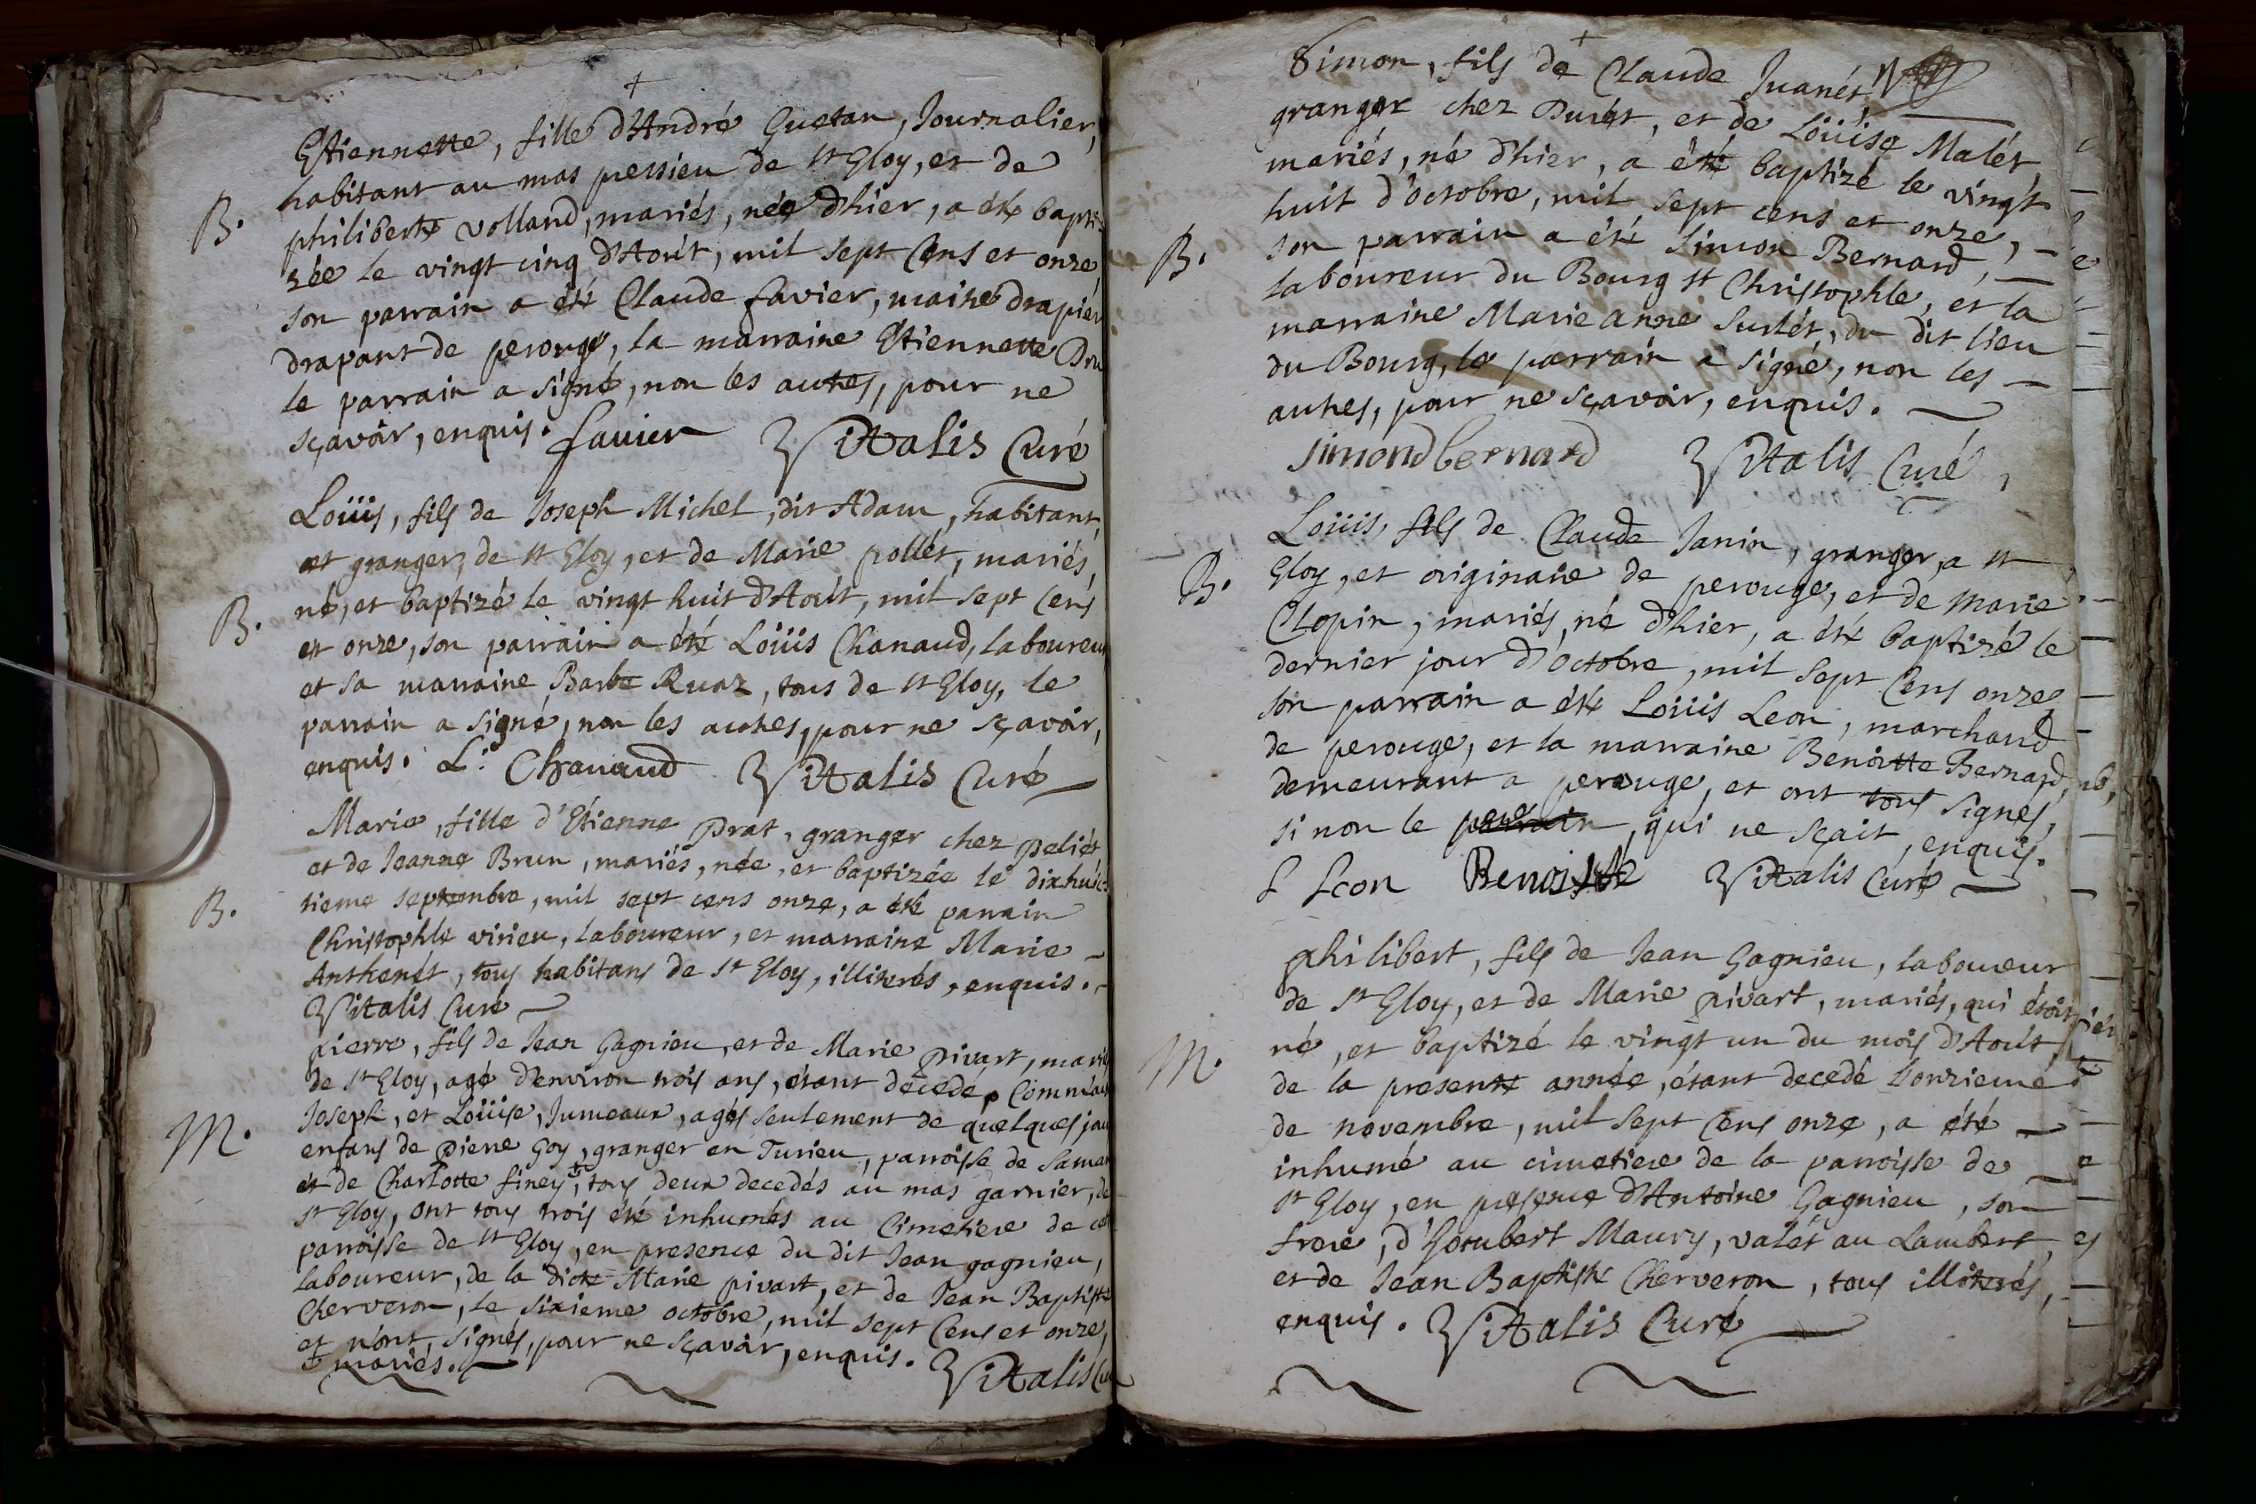 Etiennette, fille d'André Guetan, Journalier,
habitant au mas pessieu de st Eloy, et de
B. philiberte volland, mariés, née d'hier, a été bapti-
zée le vingt cinq d'Août, mil sept Cens et onze
son parrain a été Claude favier, maitre drapier
drapant de perouge, la marraine Etiennette Dru
le parrain a signé, non les autres, pour ne
sçavoir, enquis. favier Vitalis Curé
Loüis, fils de Joseph Michel, dit Adam, habitant,
et granger, de st Eloy, et de Marie pollét, mariés,
B. né, et baptizé le vingt huit d'Août, mil sept Cens
et onze, son parrain a été Loüis Chanaud, laboureur
et sa marraine Barbe Ruaz, tous de st Eloy, le
parrain a signé, non les autres, pour ne sçavoir,
enquis. L. Chanaud Vitalis Curé
Marie, fille d'Etienne Prat, granger chez Peliét
et de Jeanne Brun, mariés, née, et baptizée le dixhuic-
B. tieme septembre, mil sept cens onze, a été parrain
Christophle virieu, laboureur, et marraine Marie
Anthenét, tous habitans de st Eloy, illiterés, enquis.
Vitalis Curé
pierre, fils de Jean Gagnieu, et de Marie pivart, mariés
de st Eloy, agé d'environ trois ans, étant décédé, Comme aussi
Joseph, et Loüise, Jumeaux, agés seulement de quelques jours
M. enfans de pierre Goy, granger en Turieu, parroisse de
et de Charlotte finey, tous deux decedés au mas garnier, de
st Eloy, ont tous trois été inhumés au Cimetiere de cette
parroisse de st Eloy, en presence du dit Jean gagnieu,
laboureur, de la dicte Marie pivart, et de Jean Baptiste
Cherveron, le sixieme octobre, mil sept Cens et onze,
et n'ont signés, pour ne sçavoir, enquis. Vitalis Curé
mariés.
Simon, fils de Claude Juanét
granger chez Durét, et de Loüise Malét,
mariés, né d'hier, a été baptizé le vingt
huit d'octobre, mil sept cens et onze,
B. son parrain a été Simon Bernard,
laboureur du Bourg st Christophle, et la
marraine Marie anne Surlét, du dit lieu
du Bourg, le parrain a signé, non les
autres, pour ne sçavoir, enquis.
simond bernard Vitalis Curé
Loüis, fils de Claude Janin, granger, a st
B. Eloy, et originaire de perouge, et de Marie
Clopin, mariés, né d'hier, a été baptizé le
dernier jour d'octobre, mil sept Cens onze,
son parrain a été Loüis Leon, marchand
de perouge, et la marraine Benoitte Bernard,
demeurant a perouge, et ont tous signés,
si non le pere, qui ne sçait, enquis.
L Leon Benoitte Vitalis Curé
philibert, fils de Jean Gagnieu, laboureur
de st Eloy, et de Marie pivart, mariés, qui étoit
né, et baptizé le vingt un du mois d'Août,
M. de la presente année, étant decedé l'onzieme
de novembre, mil sept Cens onze, a été
inhumé au cimetiere de la parroisse de
st Eloy, en presence d'Antoine Gagnieu, son
frere, d'Houbert Maury, valét au Lambert,
et de Jean Baptiste Cherveron, tous illiterés,
enquis. Vitalis Curé